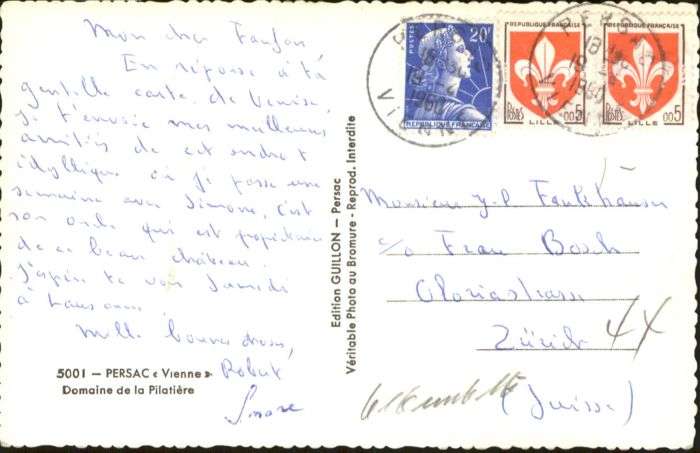 Mon cher Fanfan
En réponse à ta
gentille carte de Venise,
je t'envoie mes meilleures
amitiés de cet endroit
idyllique où je passe une
semaine avec Simone, c'est
son oncle qui est propriétaire
de ce beau château.
J'espère te voir Samedi
à Lausanne
Mille bonnes choses,
Robert
Simone
5001 — PERSAC « Vienne »
Domaine de la Pilatière
Edition GUILLON — Persac
Véritable Photo au Bromure - Reprod. Interdite
POSTES
20F
REPUBLIQUE FRANÇAISE
REPUBLIQUE FRANÇAISE
Postes
LILLE
0.05
REPUBLIQUE FRANÇAISE
Postes
LILLE
0.05
PERSAC
18
1960
VIENNE
Monsieur
c/o Frau Bosch
Gloriastrasse
Zürich 44
(Suisse)